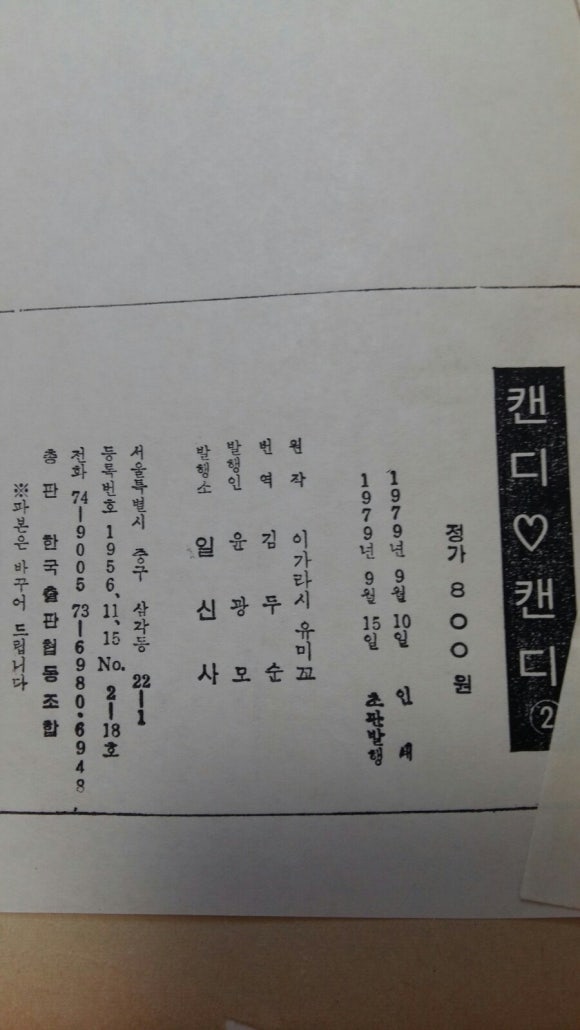 캔디♡캔디 ②
정가 800원
1979년 9월 10일 인쇄
1979년 9월 15일 초판발행
원작 이가라시 유미꼬
번역 김두순
발행인 윤광모
발행소 일신사
서울특별시 중구 삼각동 22-1
등록번호 1956. 11. 15 No. 2-18호
전화 74-9005 73-6980·6948
총판 한국출판협동조합
※파본은 바꾸어 드립니다